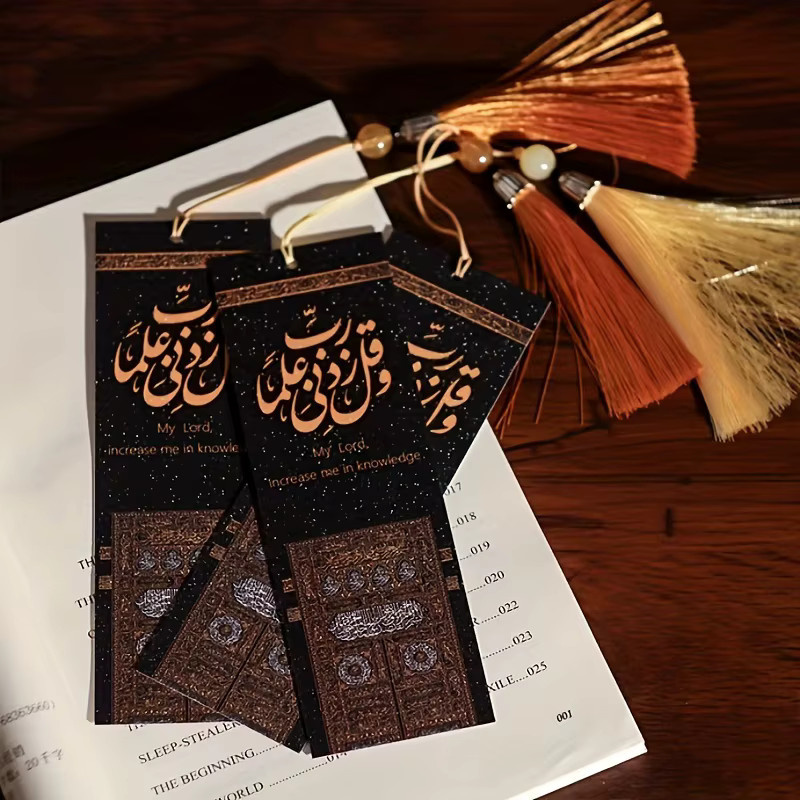 وقل رب زدني علما
My Lord,
increase me in knowle
وقل رب زدني علما
My Lord,
Increase me in knowledge.
وقل رب
017
018
019
020
022
023
XILE....025
001
SLEEP-STEALER
THE BEGINNING
WORLD
68363660)
20千字